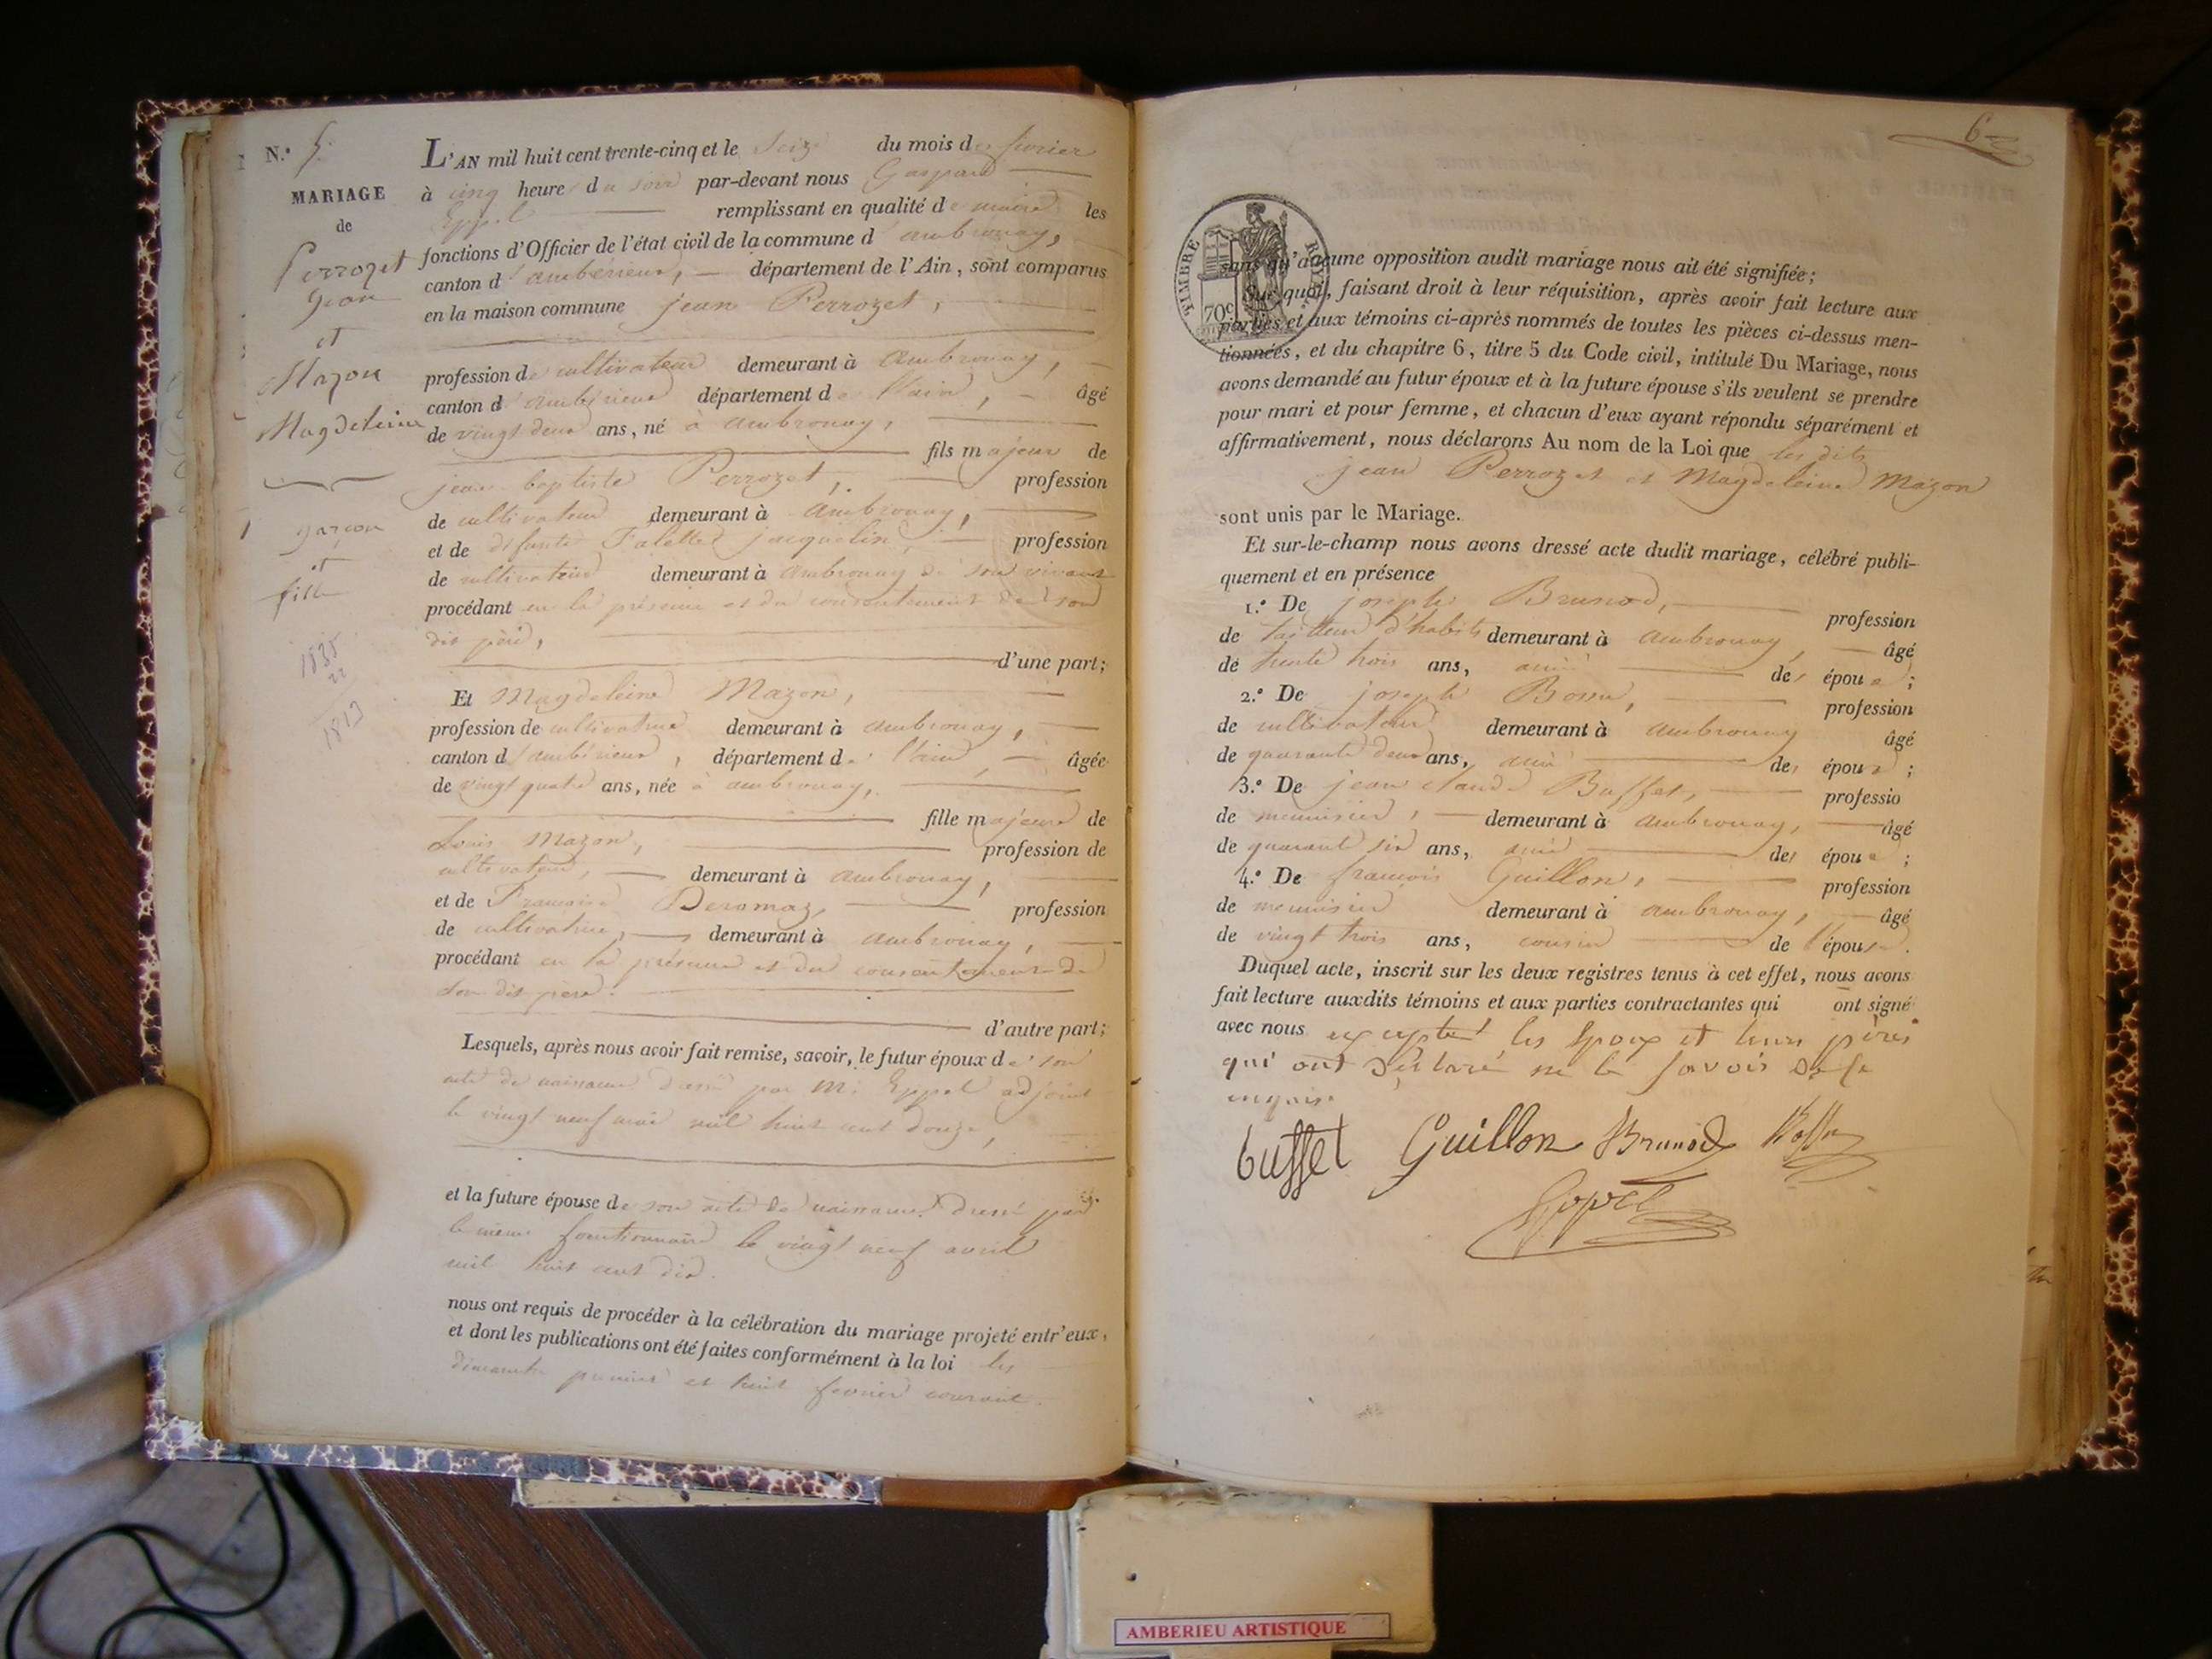 N.° 5.
MARIAGE
de
Perrozet
Jean
et
Mazon
Magdeleine
garçon
et
fille
1835
22
1813
L'AN mil huit cent trente-cinq et le Seize du mois de fevrier
à cinq heures du soir par-devant nous Gaspard
Eppel remplissant en qualité de maire les
fonctions d'Officier de l'état civil de la commune d'ambronay,
canton d'ambérieux, département de l'Ain, sont comparus
en la maison commune jean Perrozet,
profession de cultivateur demeurant à ambronay,
canton d'ambérieux département de l'ain, âgé
de vingt deux ans, né à ambronay,
fils majeur de
jean baptiste Perrozet, profession
de cultivateur demeurant à ambronay,
et de défunte Falette jacqueline, profession
de cultivatrice demeurant à ambronay de son vivant
procédant en la présence et du consentement de son
dit père,
d'une part;
Et Magdeleine Mazon,
profession de cultivatrice demeurant à ambronay,
canton d'ambérieux, département de l'ain, âgée
de vingt quatre ans, née à ambronay,
fille majeure de
Louis Mazon, profession de
cultivateur, demeurant à ambronay,
et de Françoise Deromaz, profession
de cultivatrice, demeurant à ambronay,
procédant en la présence et du consentement de
son dit père.
d'autre part;
Lesquels, après nous avoir fait remise, savoir, le futur époux de son
acte de naissance dressé par Mr Eppel adjoint
le vingt neuf mai mil huit cent douze,
et la future épouse de son acte de naissance dressé par
le même fonctionnaire le vingt neuf avril
mil huit cent dix.
nous ont requis de procéder à la célébration du mariage projeté entr'eux,
et dont les publications ont été faites conformément à la loi les
dimanche premier et huit fevrier courant.
6
TIMBRE ROYAL
70c
sans qu'aucune opposition audit mariage nous ait été signifiée;
Sur quoi, faisant droit à leur réquisition, après avoir fait lecture aux
parties et aux témoins ci-après nommés de toutes les pièces ci-dessus men-
tionnées, et du chapitre 6, titre 5 du Code civil, intitulé Du Mariage, nous
avons demandé au futur époux et à la future épouse s'ils veulent se prendre
pour mari et pour femme, et chacun d'eux ayant répondu séparément et
affirmativement, nous déclarons Au nom de la Loi que les dits
jean Perrozet et Magdeleine Mazon
sont unis par le Mariage.
Et sur-le-champ nous avons dressé acte dudit mariage, célébré publi-
quement et en présence
1.° De joseph Brunod, profession
de tailleur d'habits demeurant à ambronay, âgé
de trente trois ans, ami des époux;
2.° De joseph Bossu, profession
de cultivateur demeurant à ambronay âgé
de quarante deux ans, ami des époux;
3.° De jean claude Buffet, professio
de menuisier, demeurant à ambronay, âgé
de quarante six ans, ami des époux;
4.° De françois Guillon, profession
de menuisier demeurant à ambronay, âgé
de vingt trois ans, cousin de l'épouse.
Duquel acte, inscrit sur les deux registres tenus à cet effet, nous avons
fait lecture auxdits témoins et aux parties contractantes qui ont signé
avec nous excepté les époux et leurs pères
qui ont déclaré ne le savoir de ce
enquis.
buffet Guillon Brunod Bossu
Eppel
AMBERIEU ARTISTIQUE